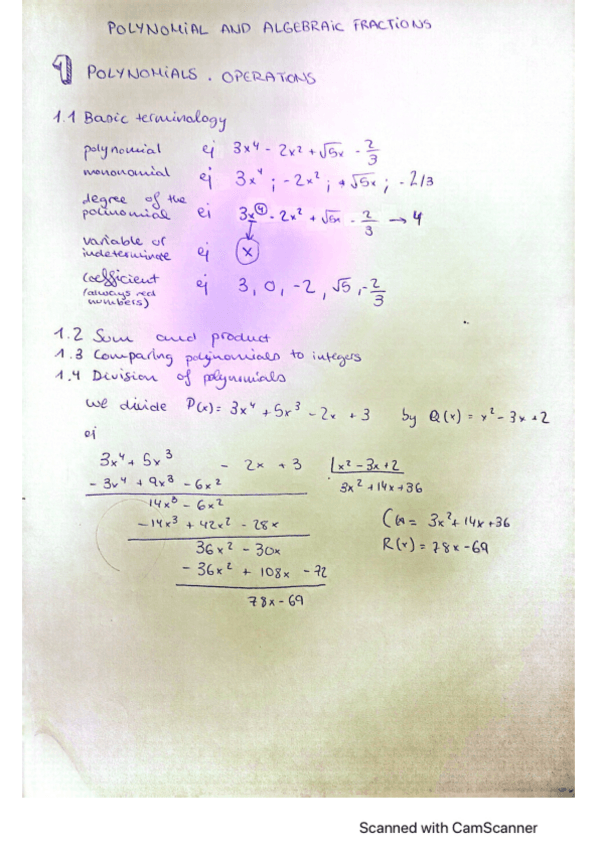 POLYNOMIAL AND ALGEBRAIC FRACTIONS
1 POLYNOMIALS . OPERATONS
1.1 Basic terminology
polynomial ej 3x⁴ - 2x² + √5x - 2/3
monomial ej 3x⁴ ; -2x² ; +√5x ; -2/3
degree of the
polinomial ej 3x⁴ - 2x² + √5x - 2/3 → 4
variable or
indeterminate ej x
Coefficient
(always real
numbers) ej 3, 0, -2, √5, -2/3
1.2 Sum and product
1.3 Comparing polynomials to integers
1.4 Division of polynomials
we divide P(x) = 3x⁴ + 5x³ - 2x + 3 by Q(x) = x² - 3x + 2
ej
3x⁴ + 5x³ - 2x + 3 | x² - 3x + 2
- 3x⁴ + 9x³ - 6x² 3x² + 14x + 36
14x³ - 6x²
- 14x³ + 42x² - 28x C(x) = 3x² + 14x + 36
36x² - 30x R(x) = 78x - 69
- 36x² + 108x - 72
78x - 69
Scanned with CamScanner